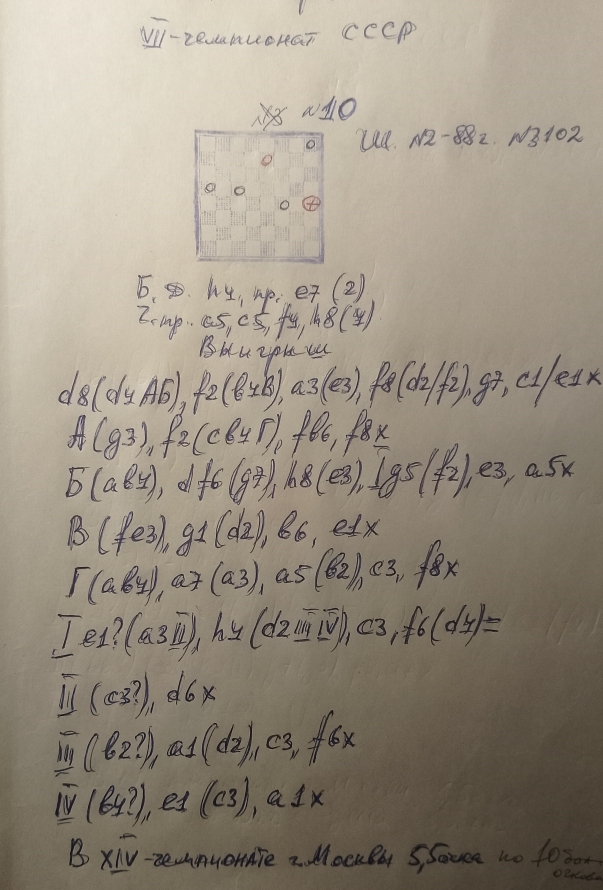 VII-чемпионат СССР
№10
Ш. №2-88г. №3102
Б. Д. h4, пр. e7 (2)
Ч. пр. a5, c5, f4, h8 (4)
Выигрыш
d8(d4АБ), f2(b4В), a3(e3), f8(d2/f2), g7, c1/e1x
А(g3), f2(cb4Г), fb6, f8x
Б(ab4), df6(g7), h8(e3), Ig5(f2), e3, a5x
В(fe3), g1(d2), b6, e1x
Г(ab4), a7(a3), a5(b2), c3, f8x
I e1?(a3II), h4(d2 III IV), c3, f6(d4)=
II (c3?), d6x
III (b2?), a1(d2), c3, f6x
IV (b4?), e1(c3), a1x
В XIV-чемпионате г. Москвы 5,5очка по 10